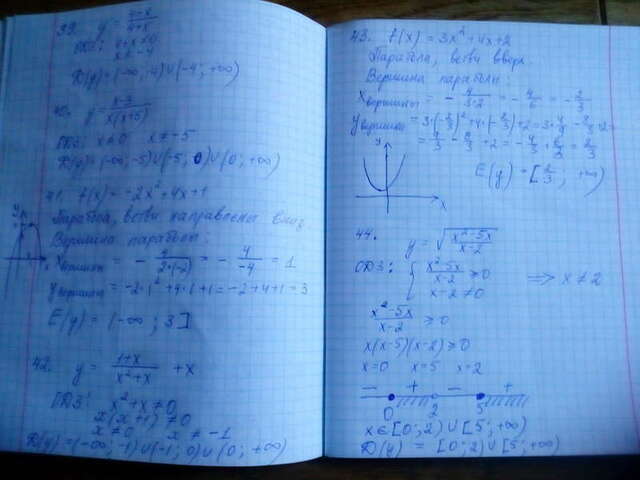 39. y = (4-x)/(4+x)
ОДЗ: 4+x≠0
x≠-4
D(y)=(-∞;-4)∪(-4;+∞)
40. y = (x-3)/(x(x+5))
ОДЗ: x≠0 x≠-5
D(y)=(-∞;-5)∪(-5;0)∪(0;+∞)
41. f(x) = -2x²+4x+1
Парабола, ветви направлены вниз.
Вершина параболы:
xвершины = -4/(2·(-2)) = -4/-4 = 1
yвершины = -2·1²+4·1+1 = -2+4+1 = 3
E(y) = (-∞; 3]
42. y = (1+x)/(x²+x) + x
ОДЗ: x²+x≠0
x(x+1)≠0
x≠0 x≠-1
D(y)=(-∞;-1)∪(-1;0)∪(0;+∞)
43. f(x) = 3x²+4x+2
Парабола, ветви вверх.
Вершина параболы:
xвершины = -4/(3·2) = -4/6 = -2/3
yвершины = 3·(-2/3)²+4·(-2/3)+2 = 3·4/9 - 8/3 + 2 =
= 4/3 - 8/3 + 2 = -4/3 + 6/3 = 2/3
y
x
E(y) = [2/3; +∞)
44. y = √((x²-5x)/(x-2))
ОДЗ: { (x²-5x)/(x-2) ≥ 0
x-2≠0 ⟹ x≠2
(x²-5x)/(x-2) ≥ 0
x(x-5)(x-2) ≥ 0
x=0 x=5 x=2
- + - +
0 2 5
x∈[0;2)∪[5;+∞)
D(y) = [0;2)∪[5;+∞)